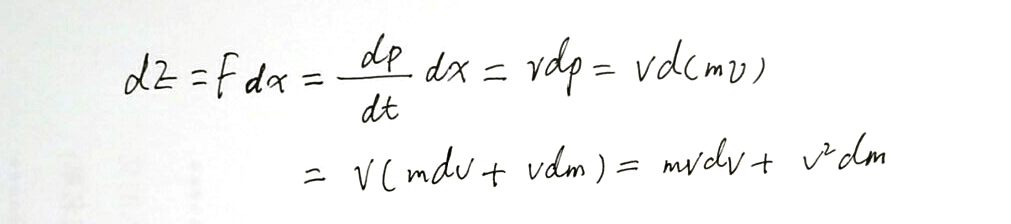 dZ = Fdx = \frac{dp}{dt} dx = vdp = vd(mv)
= v(mdv + vdm) = mvdv + v²dm